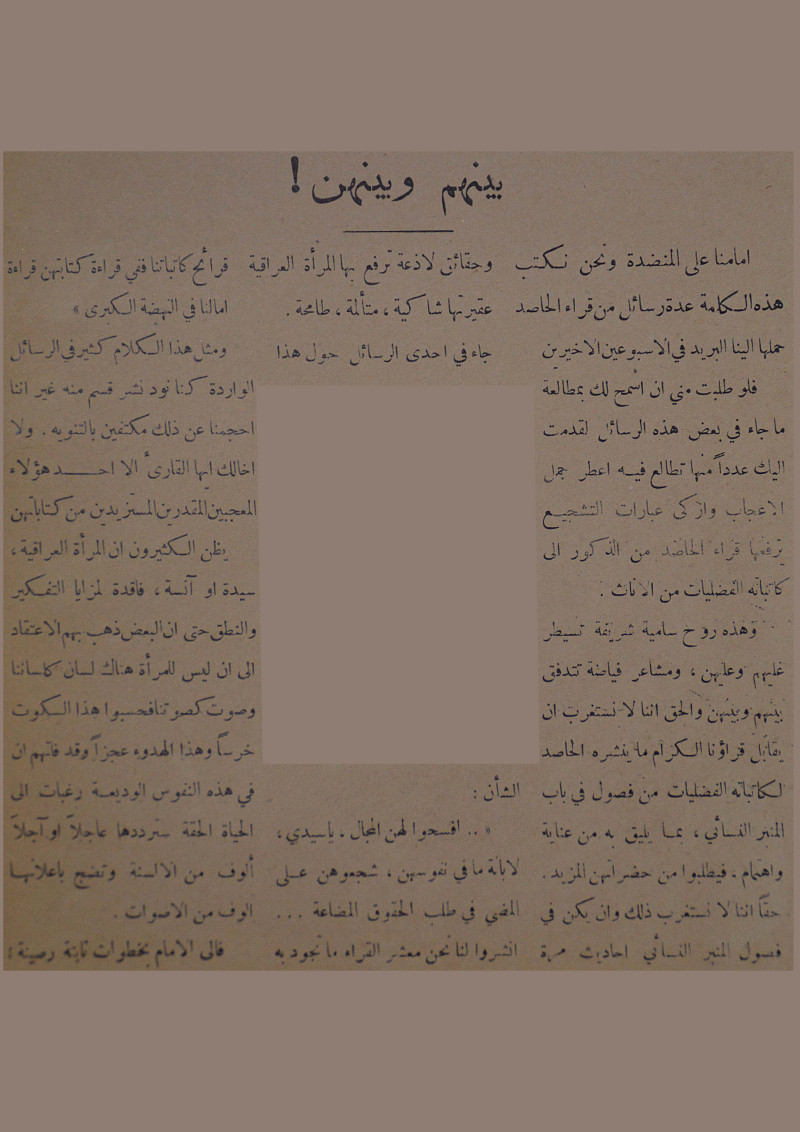 بينهم وبينهن !
امامنا على المنضدة ونحن نكتب
هذه الكلمة عدة رسائل من قراء الحاصد
حملها الينا البريد في الاسبوعين الاخيرين
فلو طلبت مني ان اسمح لك بمطالعة
ما جاء في بعض هذه الرسائل لقدمت
اليك عدداً منها تطالع فيه اعطر جمل
الاعجاب وازكى عبارات التشجيع
يرفعها قراء الحاصد من الذكور الى
كاتباته الفضليات من الاناث .
وهذه روح سامية شريفة تسيطر
عليهم وعليهن ، ومشاعر فياضة تتدفق
بينهم وبينهن والحق اننا لا نستغرب ان
يقابل قراؤنا الكرام ما ينشره الحاصد
لكاتباته الفضليات من فصول في باب
المنبر النسائي ، بما يليق به من عناية
واهتمام ، فيطلبوا من حضراتهن المزيد .
حقاً اننا لا نستغرب ذلك وان يكن في
فصول المنبر النسائي احاديث مرة
وحقائق لاذعة ترفع بها المرأة العراقية
عقيرتها شاكية ، متألمة ، طامحة .
جاء في احدى الرسائل حول هذا
الشأن :
« .. افسحوا لهن المجال . ياسيدي ،
لابانة ما في نفوسهن ، شجعوهن على
المضي في طلب الحقوق المضاعة ...
انشروا لنا نحن معشر القراء ما تجود به
قرائح كاتباتنا ففي قراءة كتابتهن قراءة
امالنا في النهضة الكبرى »
ومثل هذا الكلام كثير في الرسائل
الواردة كنا نود نشر قسم منه غير اننا
احجمنا عن ذلك مكتفين بالتنويه . ولا
اخالك ايها القارىء الا احد هؤلاء
المعجبين المقدرين المستزيدين من كتاباتهن
يظن الكثيرون ان المرأة العراقية ،
سيدة او آنسة ، فاقدة لمزايا التفكير
والنطق حتى ان البعض ذهب بهم الاعتقاد
الى ان ليس للمرأة هناك لسان كلساننا
وصوت كصوتنا فحسبوا هذا السكوت
خرساً وهذا الهدوء عجزاً وقد فاتهم ان
في هذه النفوس الوديعة رغبات الى
الحياة الحقة سترددها عاجلاً او آجلاً
ألوف من الالسنة وتضج باعلانها
الوف من الاصوات .
فالى الامام بخطوات ثابتة رصينة !